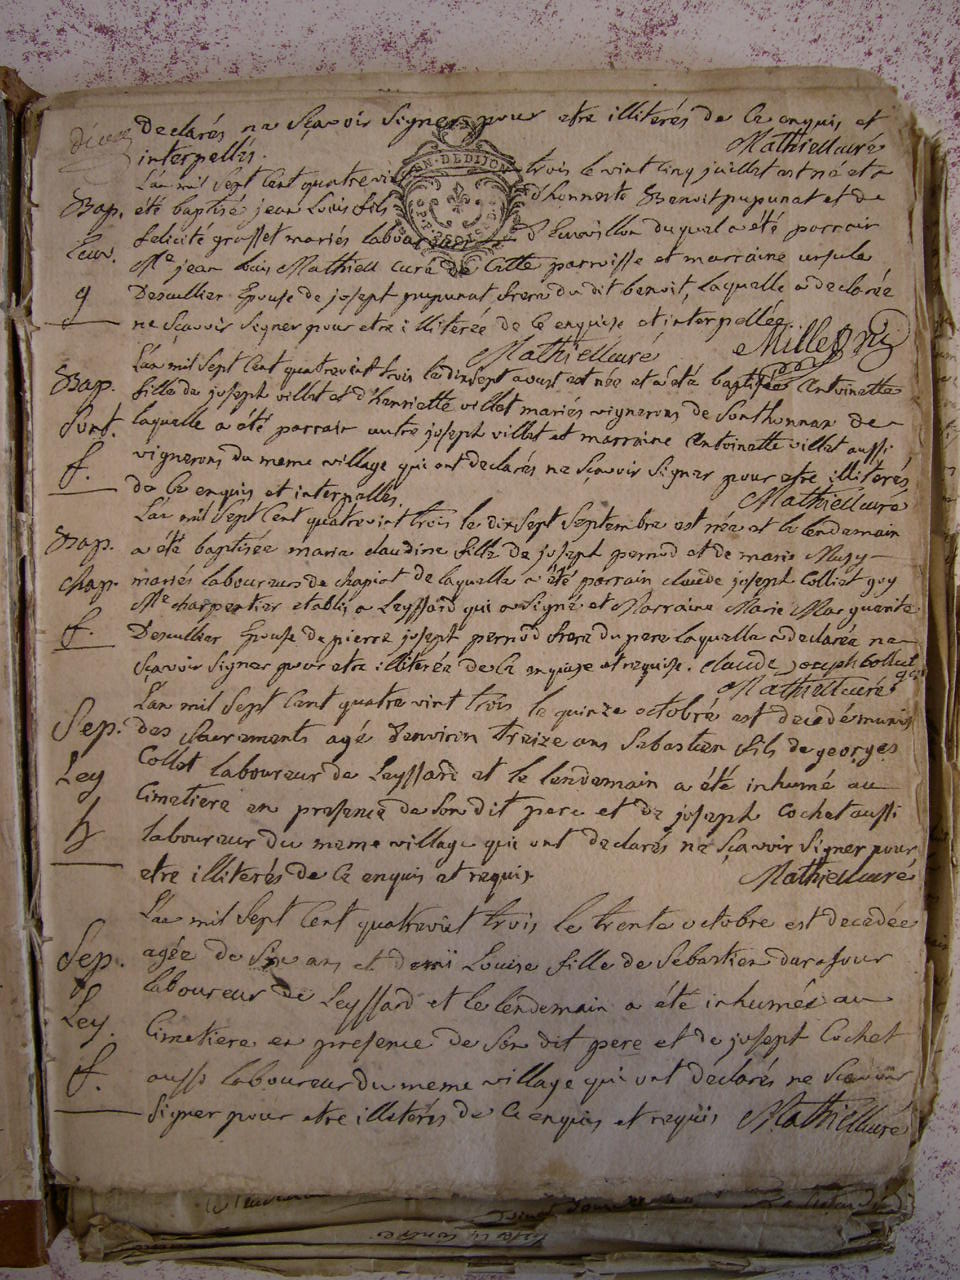 declarés ne Sçavoir Signer pour etre illiterés de ce enquis et
interpellés. Mathieu curé
L'an mil Sept Cent quatre vin trois le vint cinq juillet est né et a
Bap. été baptisé jean Louis fils d'honneste Benoit pupunat et de
felicité grosset mariés labour d'Euvoillon duquel a été parrain
Me jean Louis Mathieu curé de Cette parroisse et marraine ursule
g Descullier Epouse de joseph pupunat frere du dit benoit, laquelle a declarée
ne Sçavoir Signer pour etre illiterée de ce enquise et interpellée
Mathieu curé
L'an mil Sept Cent quatrevint trois le dix sept aoust est née et a été baptisée Antoinette
Bap. fille de joseph villet et d'henriette villet mariés vignerons de Sonthonnax de
Sont. laquelle a été parrain autre joseph villet et marraine Antoinette villet aussi
f. vignerons du meme village qui ont declarés ne Sçavoir Signer pour etre illiterés
de ce enquis et interpellés. Mathieu curé
L'an mil Sept Cent quatrevint trois le dix sept Septembre est née et le lendemain
Bap. a été baptisée marie claudine fille de joseph pernod et de marie Muzy
chap. mariés laboureurs de chapiat de laquelle a été parrain claude joseph Colliet
Me charpentier etabli a Leyssard qui a Signé et Marraine Marie Marguerite
f. Descullier Epouse de pierre joseph pernod frere du pere laquelle a declarée ne
Sçavoir Signer pour etre illiterée de ce enquise et requise. claude joseph
Mathieu curé
L'an mil Sept Cent quatre vint trois le quinze octobre est decedé munis
Sep. des Sacrements agé d'environ treize ans Sebastien fils de georges
Ley Collet laboureur de Leyssard et le lendemain a été inhumé au
Cimetiere en presence de Son dit pere et de joseph Cochet aussi
laboureur du meme village qui ont declarés ne Sçavoir Signer pour
etre illiterés de ce enquis et requis Mathieu curé
L'an mil Sept Cent quatrevint trois le trente octobre est decedée
Sep. agée de Six ans et demi Louise fille de Sebastien durafour
Ley. laboureur de Leyssard et le lendemain a été inhumée au
Cimetiere en presence de Son dit pere et de joseph Cochet
f. aussi laboureur du meme village qui ont declarés ne Scavoir
Signer pour etre illiterés de ce enquis et requis Mathieu curé